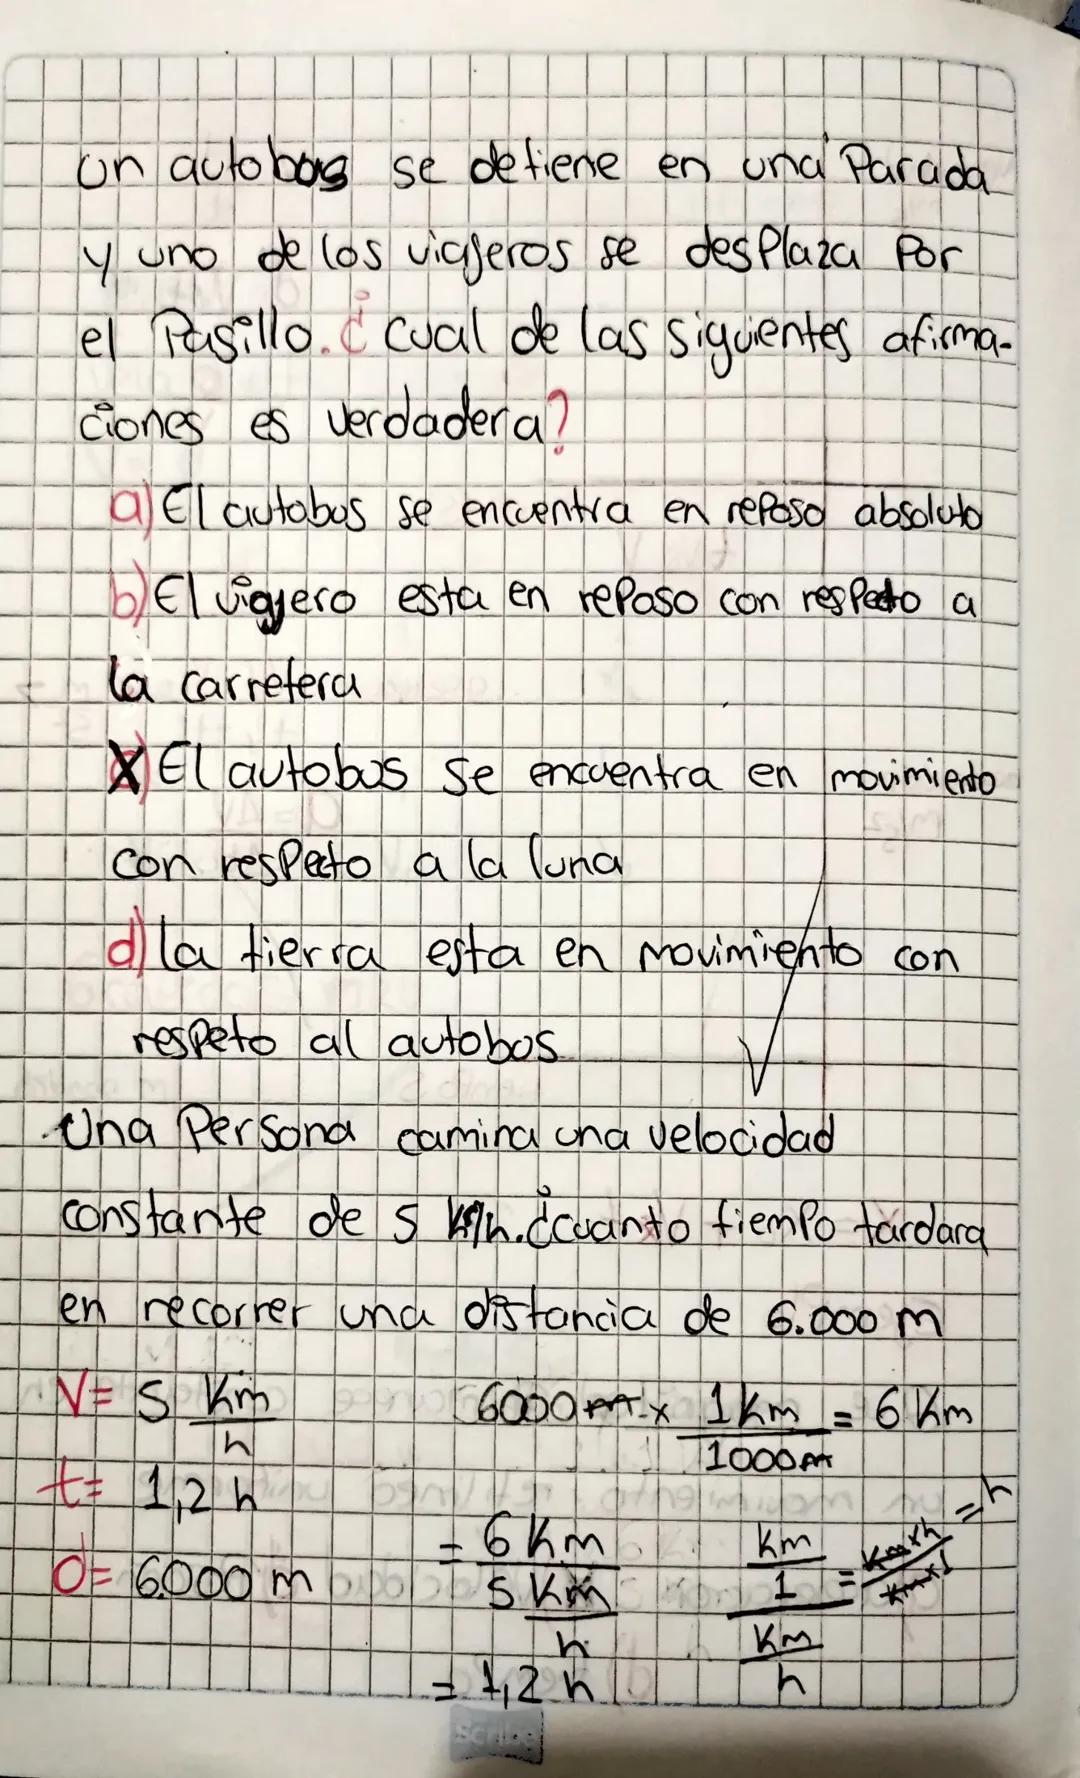 un autobos se detiene en una Parada
y uno de los viajeros se desplaza Por
el Pasillo. ¿ cual de las siguientes afirma-
ciones es verdadera?
a) El autobus se encuentra en reposo absoluto
b) El viajero esta en reposo con respecto a
la carretera
X) El autobus se encuentra en movimiento
con respecto a la luna
d) la tierra esta en movimiento con
respeto al autobos
Una Persona camina una velocidad
constante de 5 km/h. ¿cuanto tiempo tardara
en recorrer una distancia de 6.000 m
V= 5 Km/h 6000 m x 1 Km/1000 m = 6 Km
t= 1,2 h
= 6 Km / 5 Km/h Km/1 / Km/h = Km x h / Km x 1 = h
d= 6.000 m
= 1,2 h
scribe